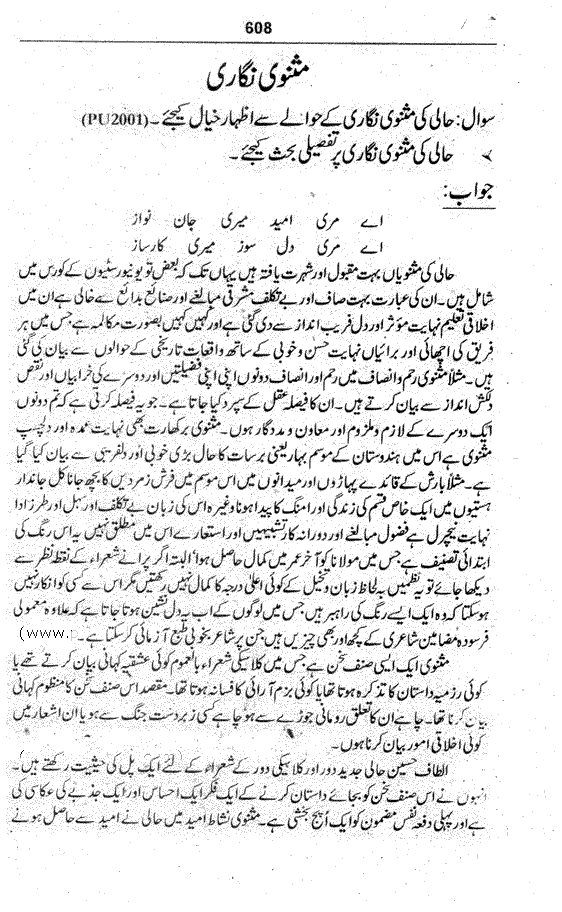 608
مثنوی نگاری
سوال: حالی کی مثنوی نگاری کے حوالے سے اظہار خیال کیجئے۔ (PU2001)
حالی کی مثنوی نگاری پر تفصیلی بحث کیجئے۔
جواب:
اے مری امید میری جان نواز
اے مری دل سوز میری کارساز
حالی کی مثنویاں بہت مقبول اور شہرت یافتہ ہیں یہاں تک کہ بعض تو یونیورسٹیوں کے کورس میں
شامل ہیں۔ ان کی عبارت بہت صاف اور بے تکلف مشرقی مبالغے اور صنائع بدائع سے خالی ہے ان میں
اخلاقی تعلیم نہایت مؤثر اور دل فریب انداز سے دی گئی ہے اور کہیں کہیں بصورت مکالمہ ہے جس میں ہر
فریق کی اچھائی اور برائیاں نہایت حسن و خوبی کے ساتھ واقعات تاریخی کے حوالوں سے بیان کی گئی
ہیں۔ مثلاً مثنوی رحم و انصاف میں رحم اور انصاف دونوں اپنی اپنی فضیلتیں اور دوسرے کی خرابیاں اور نقص
دلکش انداز سے بیان کرتے ہیں۔ ان کا فیصلہ عقل کے سپرد کیا جاتا ہے۔ جو یہ فیصلہ کرتی ہے کہ تم دونوں
ایک دوسرے کے لازم و ملزوم اور معاون و مددگار ہوں۔ مثنوی برکھارت بھی نہایت عمدہ اور دلچسپ
مثنوی ہے اس میں ہندوستان کے موسم بہار یعنی برسات کا حال بڑی خوبی اور دلفریبی سے بیان کیا گیا
ہے۔ مثلاً بارش کے فائدے پہاڑوں اور میدانوں میں اس موسم میں فرش زمردیں کا بچھ جانا کل جاندار
ہستیوں میں ایک خاص قسم کی زندگی اور امنگ کا پیدا ہونا وغیرہ اس کی زبان بے تکلف اور سہل اور طرز ادا
نہایت نیچرل ہے فضول مبالغے اور دورانہ کار تشبیہیں اور استعارے اس میں مطلق نہیں یہ اس رنگ کی
ابتدائی تصنیف ہے جس میں مولانا کو آخر عمر میں کمال حاصل ہوا' البتہ اگر پرانے شعراء کے نقطہ نظر سے
دیکھا جائے تو یہ نظمیں بہ لحاظ زبان و تخیل کے کوئی اعلیٰ درجہ کا کمال نہیں رکھتیں مگر اس سے کسی کو انکار نہیں
ہو سکتا کہ وہ ایک ایسے رنگ کی راہبر ہیں جس میں لوگوں کے اب یہ دل نشین ہوتا جاتا ہے کہ علاوہ معمولی
فرسودہ مضامین شاعری کے کچھ اور بھی چیزیں ہیں جن پر شاعر بخوبی طبع آزمائی کر سکتا ہے۔ (www.
مثنوی ایک ایسی صنف سخن ہے جس میں کلاسیکی شعراء بالعموم کوئی عشقیہ کہانی بیان کرتے تھے یا
کوئی رزمیہ داستان کا تذکرہ ہوتا تھا یا کوئی بزم آرائی کا فسانہ ہوتا تھا۔ مقصد اس صنف سخن کا منظوم کہانی
بیان کرنا تھا۔ چاہے ان کا تعلق رومانی جوڑے سے ہو چاہے کسی زبردست جنگ سے ہو یا ان اشعار میں
کوئی اخلاقی امور بیان کرنا ہوں۔
الطاف حسین حالی جدید دور اور کلاسیکی دور کے شعراء کے لئے ایک پل کی حیثیت رکھتے ہیں۔
انہوں نے اس صنف سخن کو بجائے داستان کرنے کے ایک فکر ایک احساس اور ایک جذبے کی عکاسی کی
ہے اور پہلی دفعہ نفس مضمون کو ایک اپج بخشی ہے۔ مثنوی نشاط امید میں حالی نے امید سے حاصل ہونے